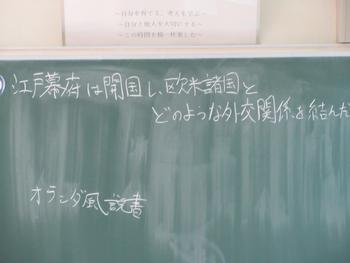 ～自分を育てる、考えを学ぶ～
～自分と他人を大切にする～
～この時間を精一杯楽しむ～
江戸幕府は開国し、欧米諸国と
どのような外交関係を結んだ
オランダ風説書